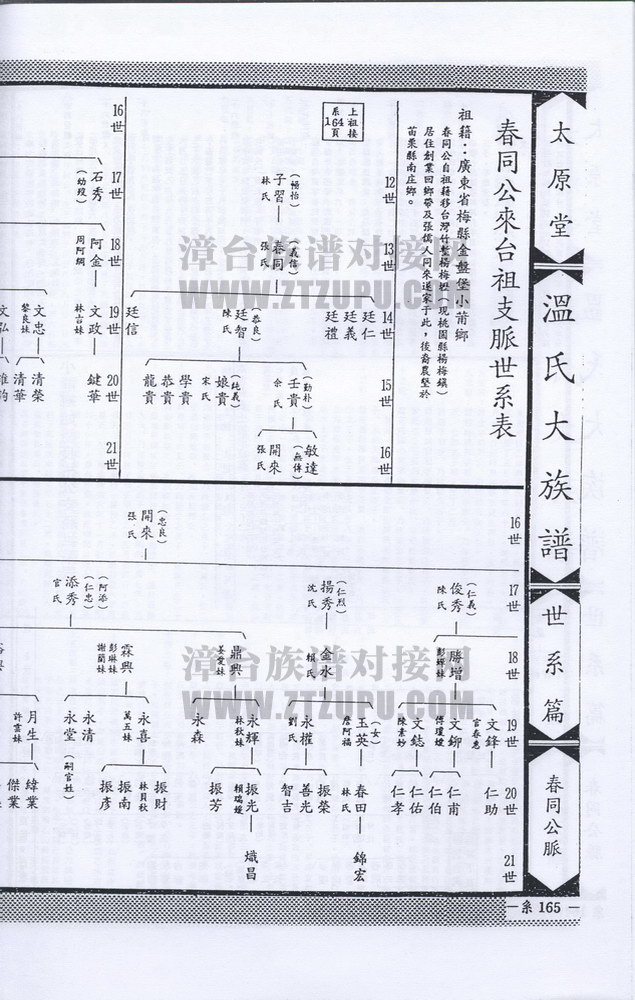 太原堂
溫氏大族譜
世系篇
春同公脈
—系 165 —
春同公來台祖支脈世系表
祖籍：廣東省梅縣金盤堡小莆鄉
春同公自祖籍移台灣竹塹楊梅壢（現桃園縣楊梅鎮）
居住創業回鄉帶及張儒人同來遂家于此，後裔農墾於
苗栗縣南庄鄉。
上祖接
系164頁
12世
13世
14世
15世
16世
子習（暢怡）
林氏
春同（義信）
張氏
廷仁
廷義
廷禮
廷智（恭良）
陳氏
廷信
壬貴（勤朴）
余氏
娘貴（純義）
宋氏
學貴
恭貴
龍貴
敏達（無傳）
開來
張氏
16世
17世
18世
19世
20世
21世
石秀（幼歿）
阿金
周阿綢
文政
林言妹
鍵華
文忠
黎良妹
清榮
清華
文弘
16世
17世
18世
19世
20世
21世
開來（忠良）
張氏
俊秀（仁義）
陳氏
揚秀（仁烈）
沈氏
添秀（仁忠）（阿添）
官氏
勝增
彭嬋妹
金水
賴氏
鼎興
姜愛妹
霖興
彭琳妹
謝蘭妹
文鋒
官春惠
文鉚
傅瓊嬡
文鋕
陳素妙
玉英（女）
詹阿福
永權
劉氏
永輝
林秋妹
永森
永喜
萬五妹
永清
永堂（嗣官姓）
月生
許雲妹
仁助
仁甫
仁伯
仁佑
仁孝
春田
林氏
振榮
善光
智吉
振光
賴瑞嬡
振芳
振財
林貝秋
振南
振彥
緯業
傑業
錦宏
熾昌
漳台族谱对接网
WWW.ZTZUPU.COM
漳台族谱对接网
WWW.ZTZUPU.COM